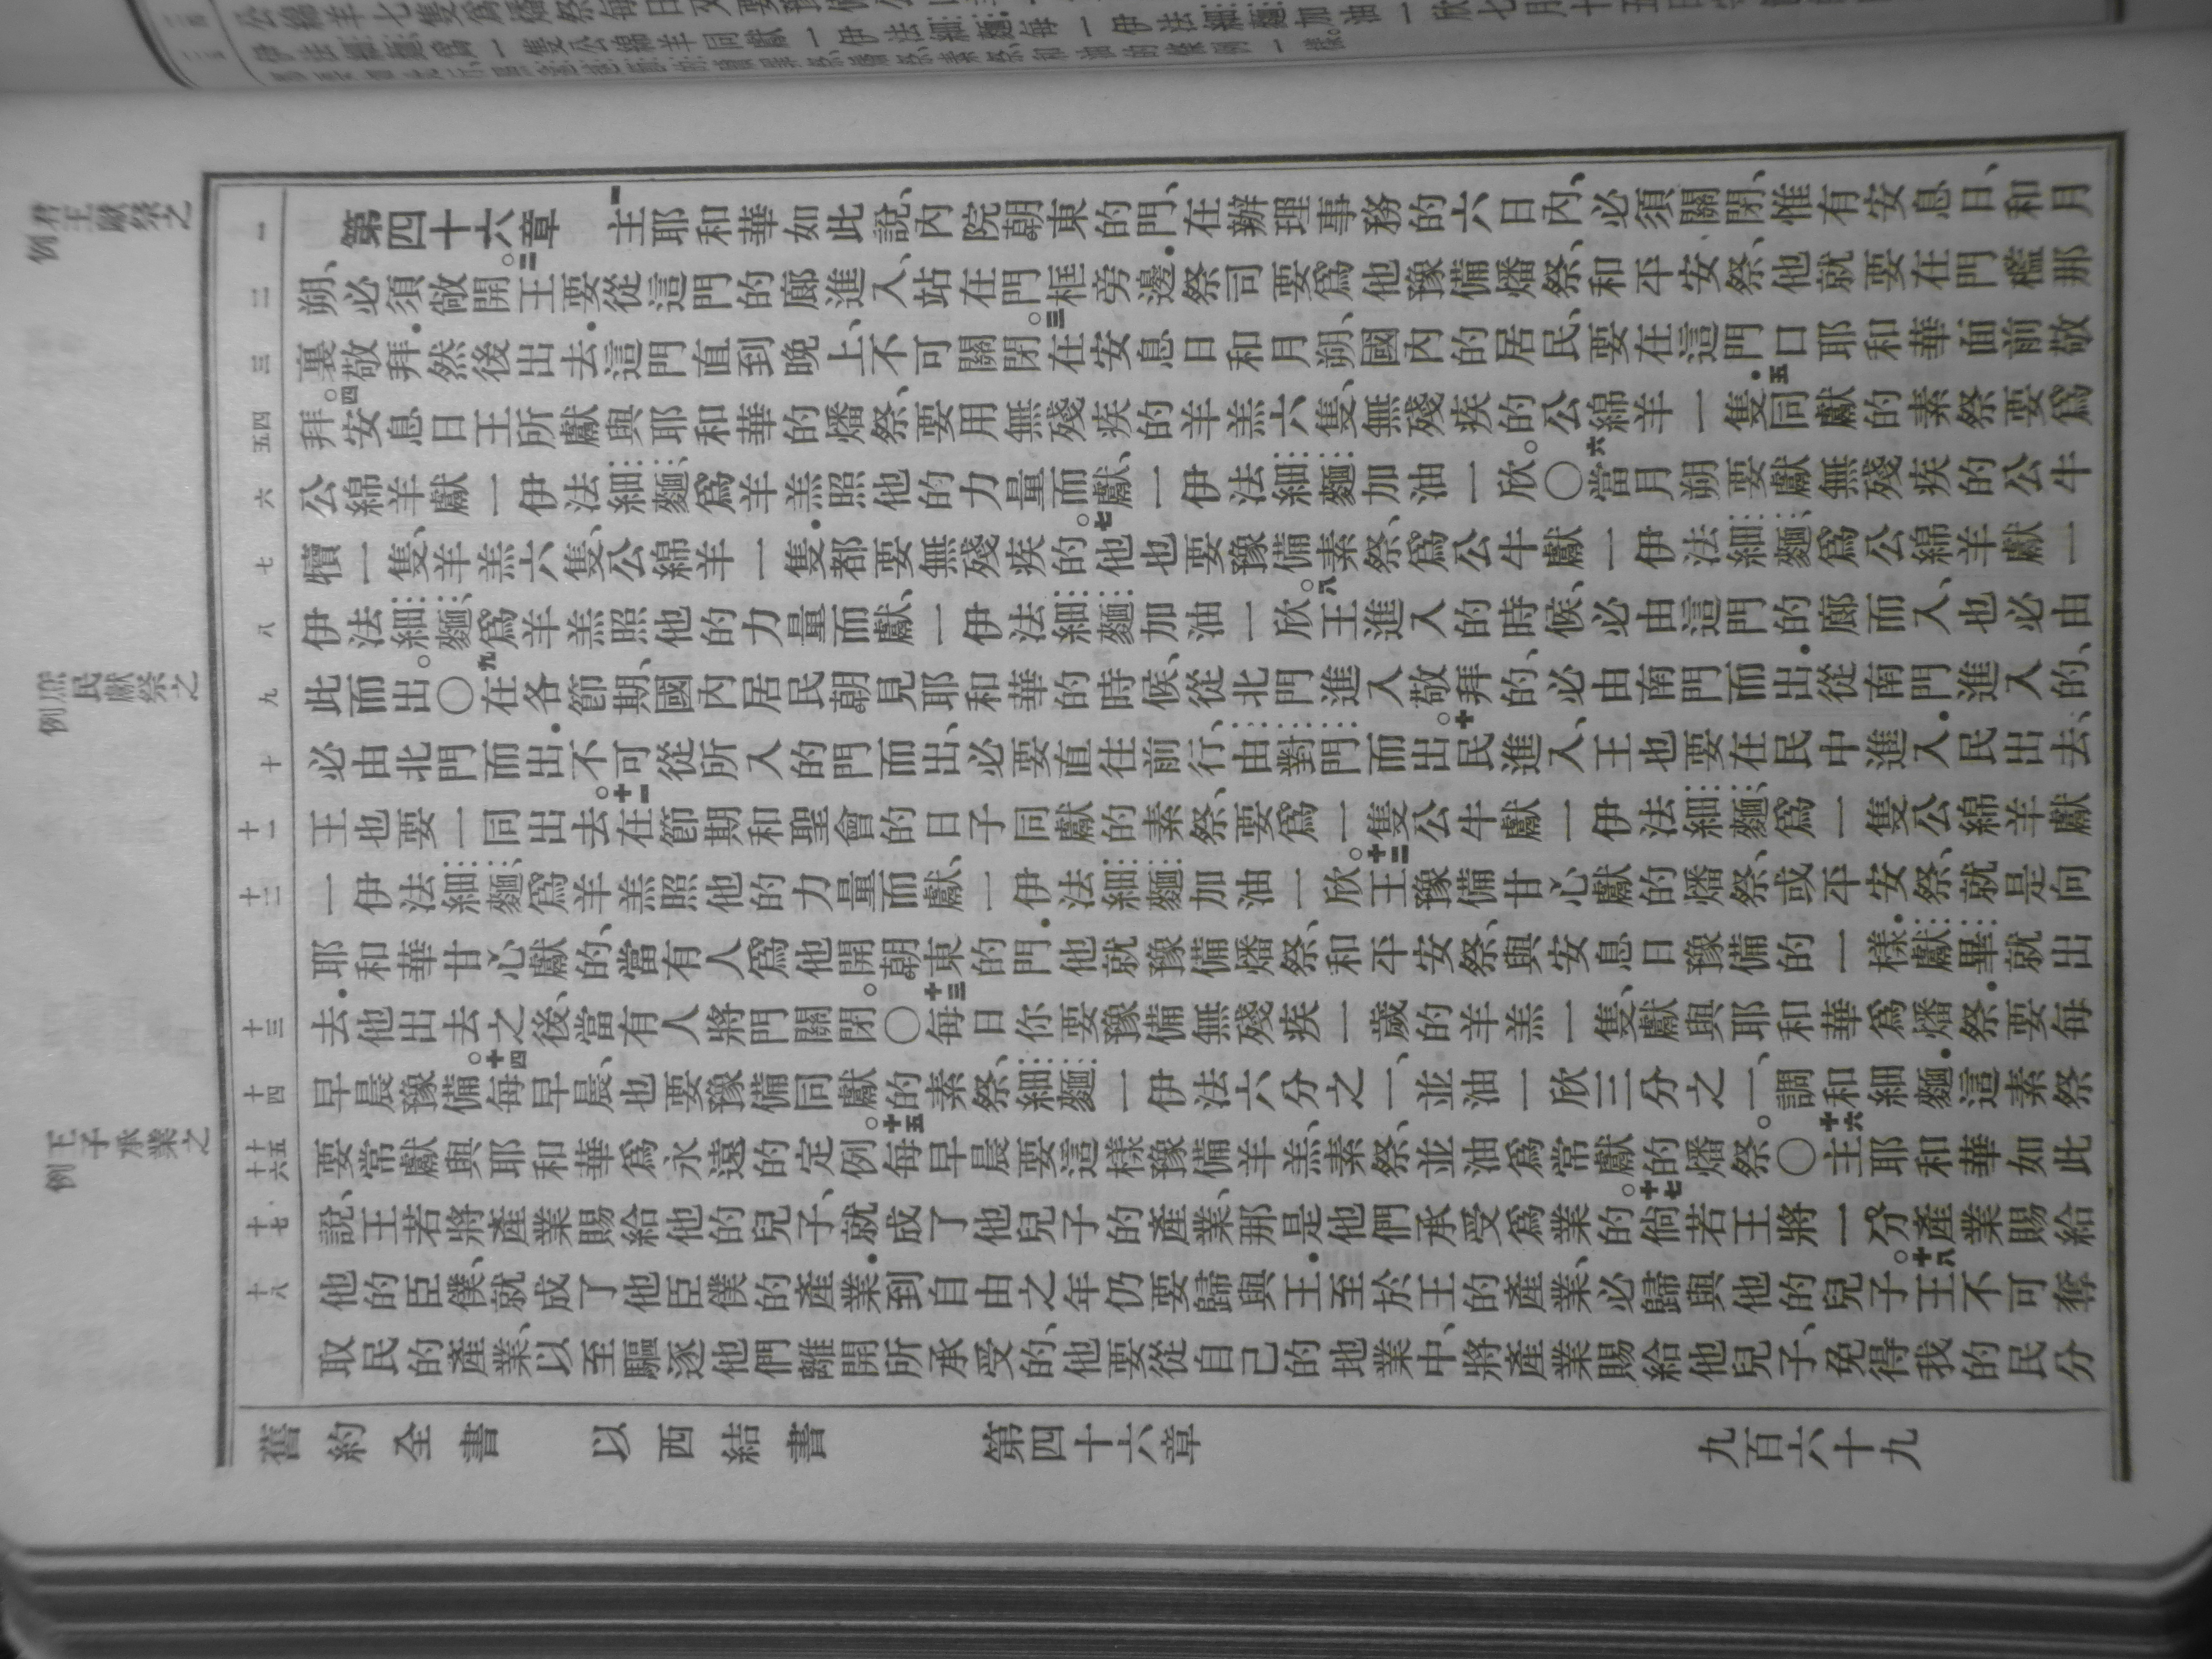 君王獻祭之例
庶民獻祭之例
王子承業之例
一 第四十六章 一主耶和華如此說、內院朝東的門、在辦理事務的六日內、必須關閉、惟有安息日、和月
二 朔、必須敞開。二王要從這門的廊進入、站在門框旁邊．祭司要爲他豫備燔祭、和平安祭、他就要在門檻那
三 裏敬拜．然後出去．這門直到晚上、不可關閉。三在安息日和月朔、國內的居民、要在這門口耶和華面前敬
四五 拜。四安息日王所獻與耶和華的燔祭、要用無殘疾的羊羔六隻、無殘疾的公綿羊一隻．五同獻的素祭要爲
六 公綿羊獻一伊法細麵、爲羊羔照他的力量而獻、一伊法細麵加油一欣。〇六當月朔要獻無殘疾的公牛
七 犢一隻、羊羔六隻、公綿羊一隻．都要無殘疾的。七他也要豫備素祭、爲公牛獻一伊法細麵、爲公綿羊獻一
八 伊法細麵、爲羊羔照他的力量而獻、一伊法細麵加油一欣。八王進入的時候、必由這門的廊而入、也必由
九 此而出。〇九在各節期、國內居民朝見耶和華的時候、從北門進入敬拜的、必由南門而出．從南門進入的、
十 必由北門而出．不可從所入的門而出、必要直往前行、由對門而出。十民進入、王也要在民中進入．民出去、
十一 王也要一同出去。十一在節期和聖會的日子同獻的素祭、要爲一隻公牛獻一伊法細麵、爲一隻公綿羊獻
十二 一伊法細麵、爲羊羔照他的力量而獻、一伊法細麵加油一欣。十二王豫備甘心獻的燔祭、或平安祭、就是向
耶和華甘心獻的、當有人爲他開朝東的門．他就豫備燔祭、和平安祭、與安息日豫備的一樣．獻畢就出
十三 去．他出去之後、當有人將門關閉。〇十三每日你要豫備無殘疾一歲的羊羔一隻、獻與耶和華爲燔祭．要每
十四 早晨豫備。十四每早晨、也要豫備同獻的素祭、細麵一伊法六分之一、並油一欣三分之一、調和細麵．這素祭
十五十六 要常獻與耶和華爲永遠的定例。十五每早晨要這樣豫備羊羔、素祭、並油爲常獻的燔祭。〇十六主耶和華如此
十七 說、王若將產業賜給他的兒子、就成了他兒子的產業、那是他們承受爲業的。十七倘若王將一分產業賜給
十八 他的臣僕、就成了他臣僕的產業．到自由之年仍要歸與王．至於王的產業、必歸與他的兒子。十八王不可奪
取民的產業、以至驅逐他們離開所承受的、他要從自己的地業中、將產業賜給他兒子、免得我的民分
舊約全書 以西結書 第四十六章 九百六十九